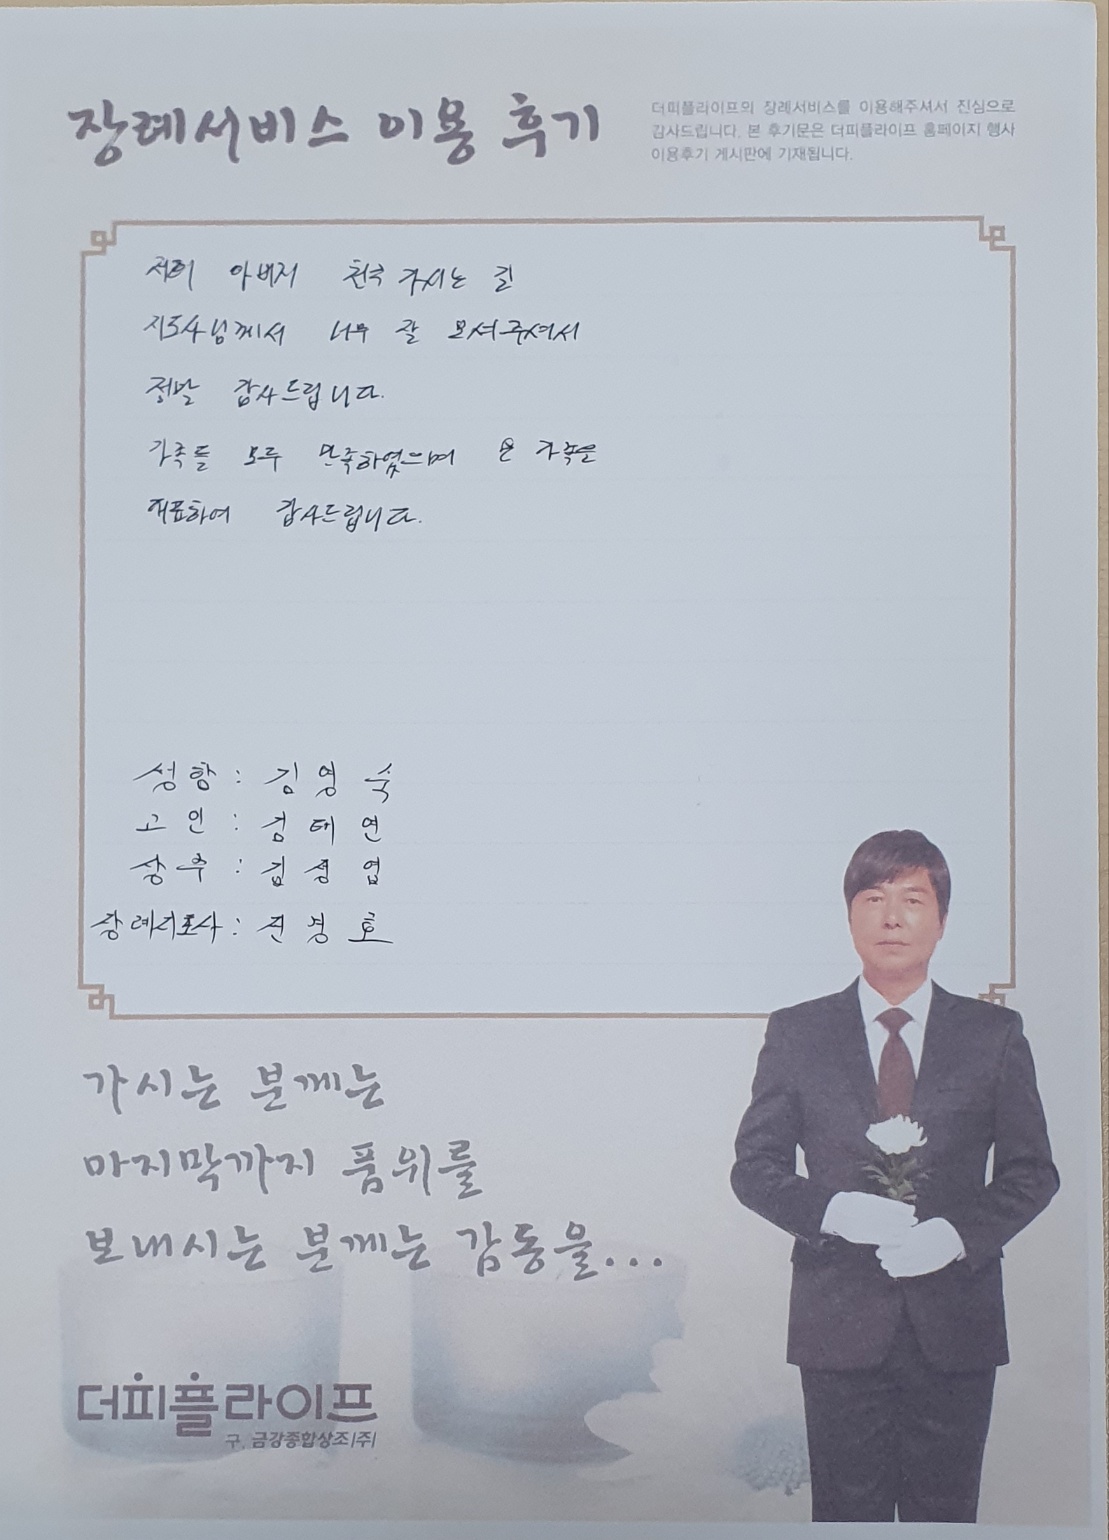 장례서비스 이용 후기
더피플라이프의 장례서비스를 이용해주셔서 진심으로
감사드립니다. 본 후기문은 더피플라이프 홈페이지 행사
이용후기 게시판에 기재됩니다.
저희 아버지 천국 가시는 길
지도사님께서 너무 잘 모셔주셔서
정말 감사드립니다.
가족들 모두 만족하였으며 온 가족을
대표하여 감사드립니다.
성함 : 김영숙
고인 : 김태연
상주 : 김성엽
장례지도사 : 전경호
가시는 분께는
마지막까지 품위를
보내시는 분께는 감동을...
더피플라이프
구. 금강종합상조(주)